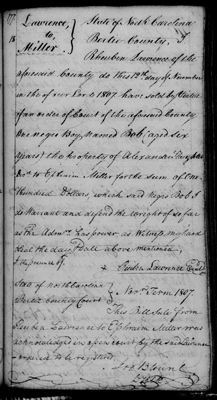 Lawrence, State of North Carolina
to, Bertie County, I
Miller. Rheuben Lawrence of the
aforesaid County do this 12th day of November
in the of our Lord 1807 have sold by Virtue
of an order of Court of the aforesaid County
One negro Boy, named Bob, aged six
years the property of
to Ephraim Miller for the sum of One
Hundred Dollars, which said Negro Bob, I
do Warrant and defend the wright of so far
as the power as Witness my hand
the day & date above mentioned
In the presence of
Reuben Lawrence
State of North Carolina Novr Term 1807.
Bertie County Court
This Bill Sale from
Reuben Lawrence to Ephraim Miller was
acknowledged in open court by the said Lawrence
to be registered.
Blount